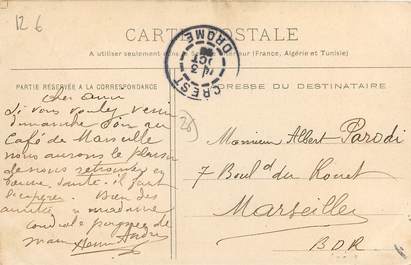 126
CARTE POSTALE
A utiliser seulement dans (France, Algérie et Tunisie)
PARTIE RÉSERVÉE A LA CORRESPONDANCE
ADRESSE DU DESTINATAIRE
CREST
DROME
3
OCT
26
cher ami
Si vous voulez venir
dimanche soir au
Café de Marseille
nous aurons le plaisir
de nous retrouver en
bonne santé il faut
l'espérer. Bien des
amitiés a madame
cordiale poignée de
main Henri André
Monsieur Albert Parodi
7 Boul^d du Rouet
Marseille
B.D.R